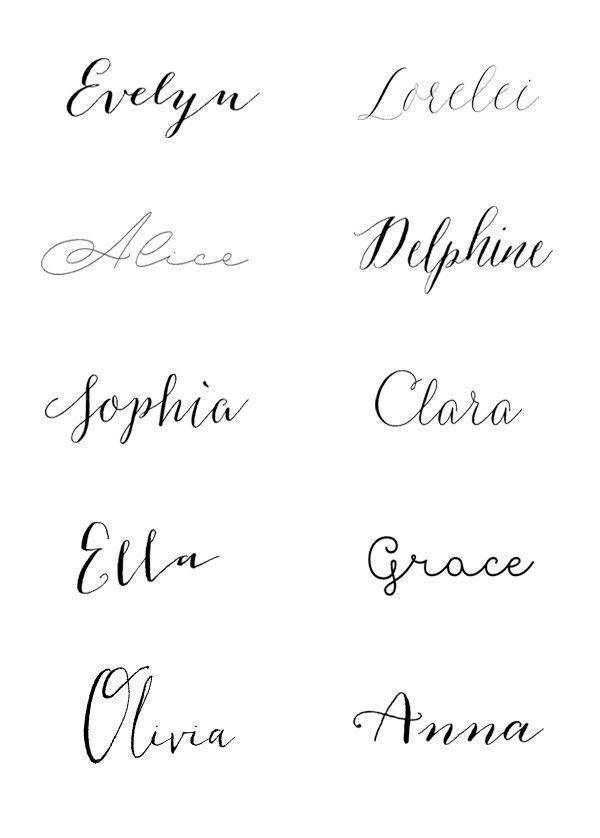 Evelyn
Lorelei
Alice
Delphine
Sophia
Clara
Ella
Grace
Olivia
Anna